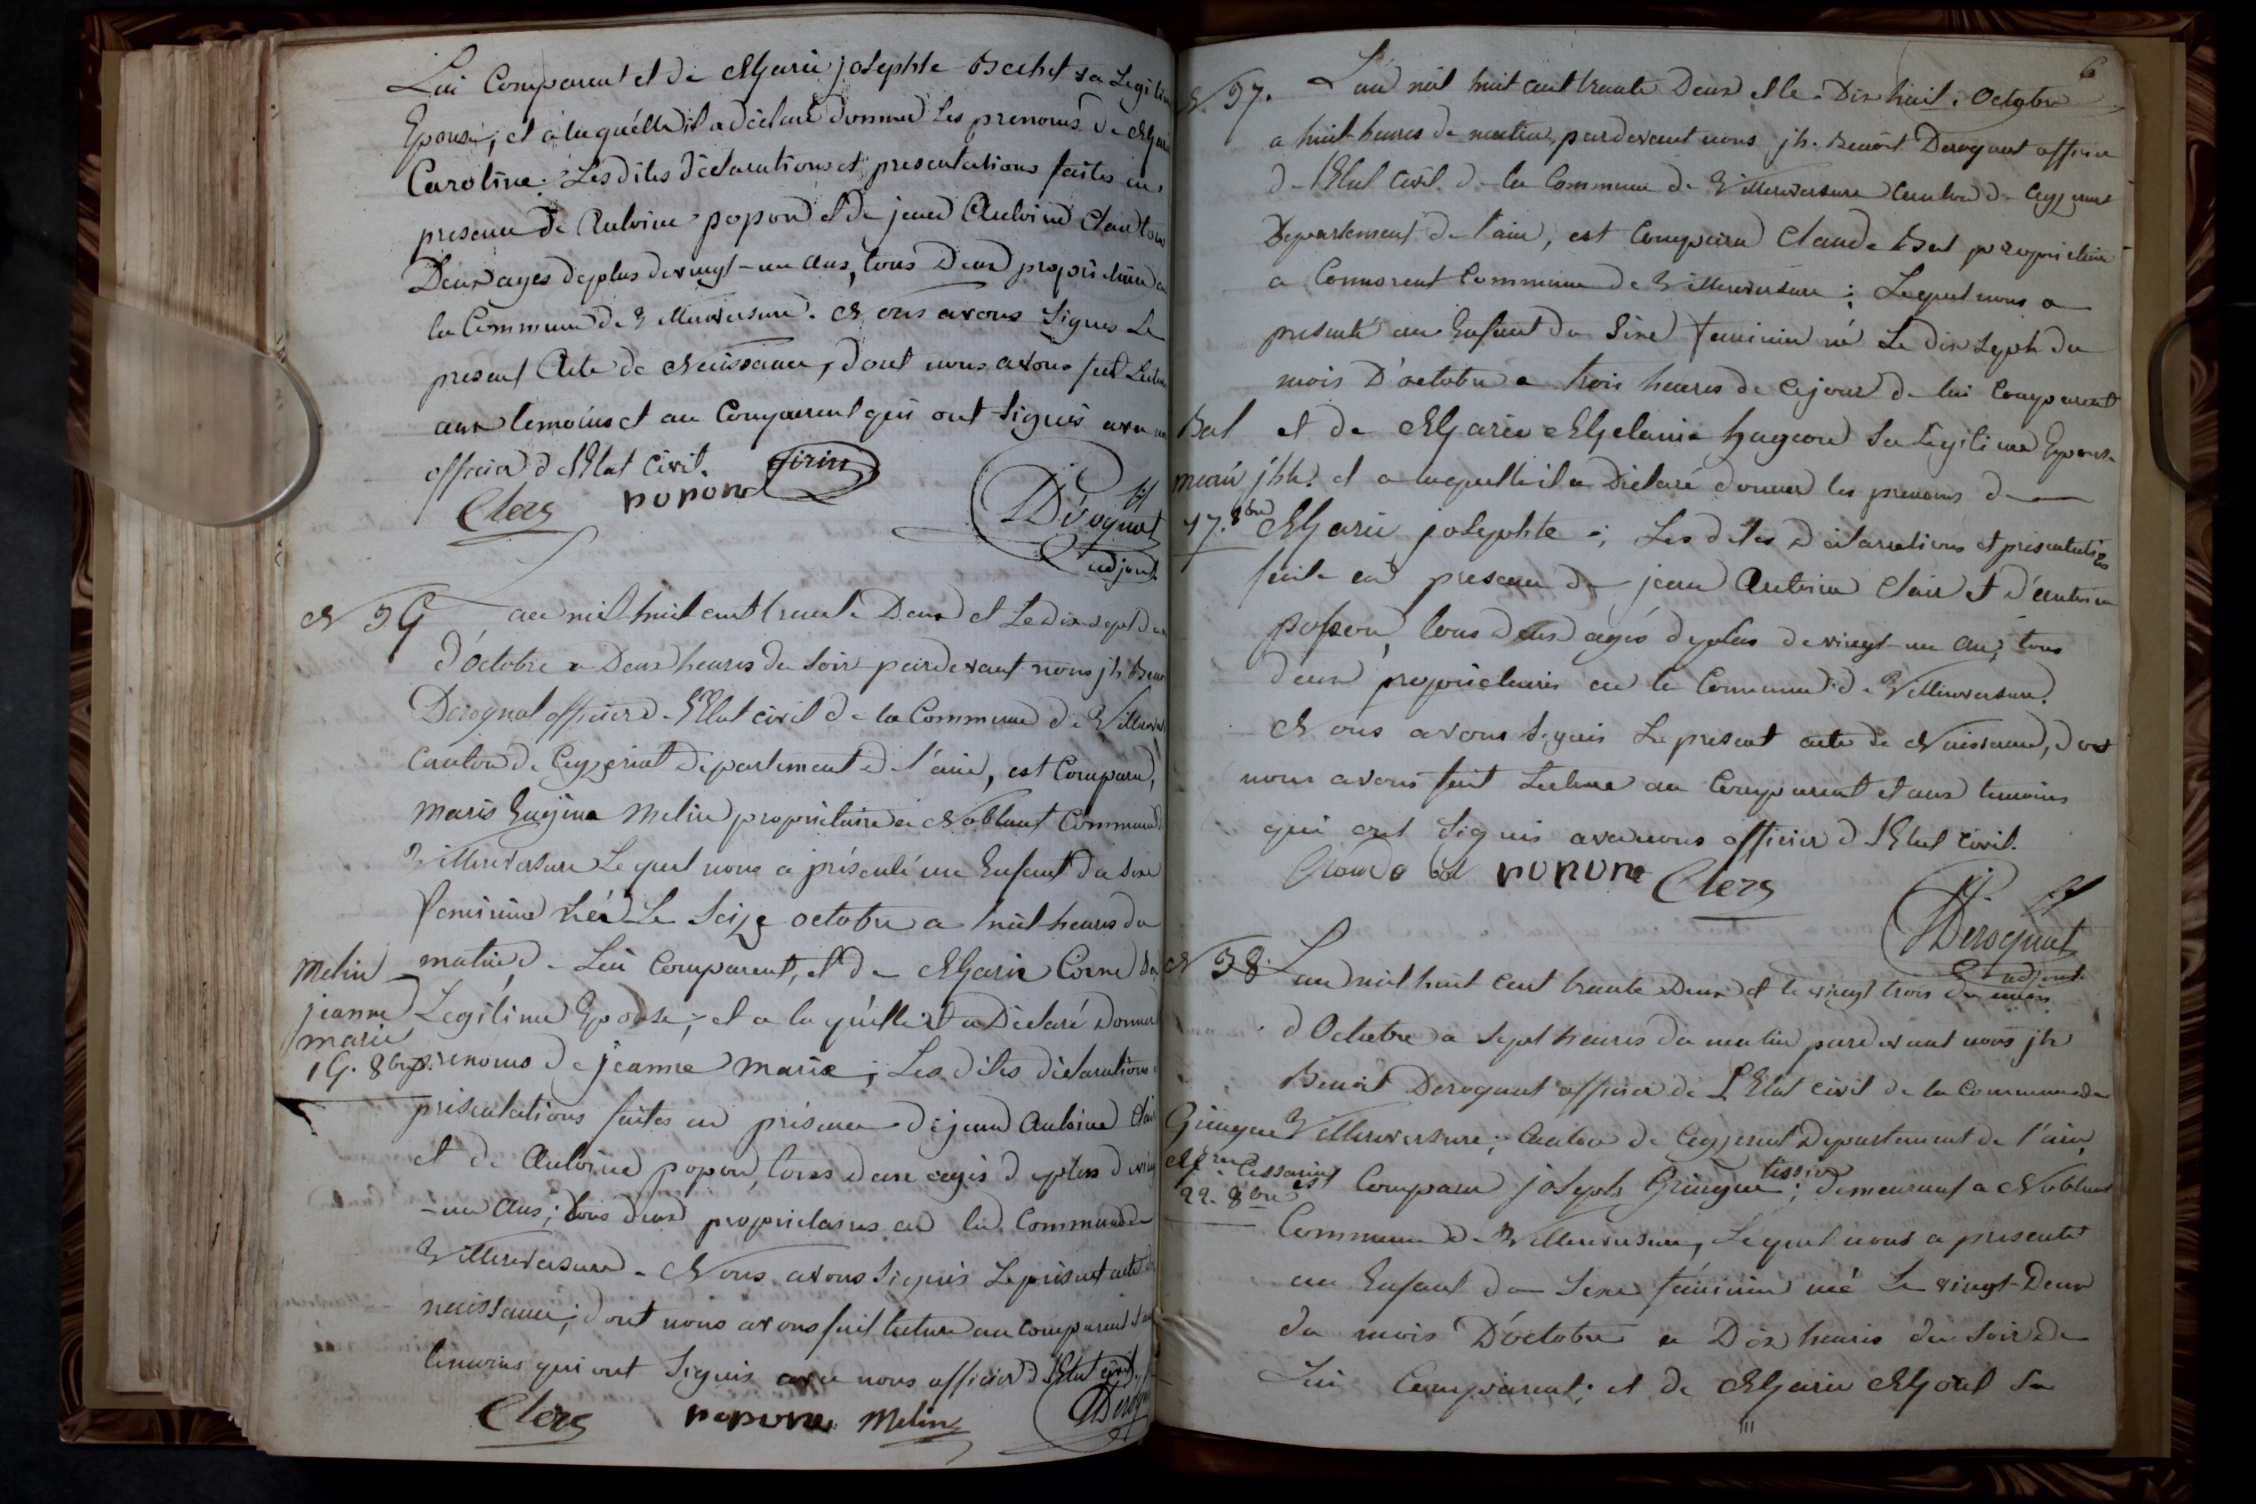 Lui Comparent et de Marie josephte Bachet sa Legitime
Epouse, et a laquelle il a déclaré donner Les prenoms de Marie
Caroline. Les dites déclarations et presentations faites en
presence de Antoine popon et de jean Antoine Clair tous
Deux ages de plus de vingt-un ans, tous Deux propriétaires
la Commune de Villereversure. Nous avons Signes Le
present Acte de Naissance, dont nous avons fait Lecture
aux temoins et au Comparent qui ont signés avec
officier d'Etat civil. Girin
Clerc popon Dérognat
adjoint
N 36 au mil huit cent trente Deux et Le dix sept du
d'octobre a Deux heures du soir pardevant nous jh Benoit
Derognat officier d'Etat civil de la Commune de Villerever
Canton de Ceyzeriat département de l'ain, est Comparu,
Marie Eugine Melin propriétaire a Noblant Commune
Villereversure Lequel nous a présenté un Enfant du sexe
feminin née Le Seize octobre a huit heures du
Melin
jeanne
marie
16. 8bre
matin de Lui Comparent, et de Marie Corne sa
Legitime Epouse; et a laquelle il a Déclaré Donner
prenoms de jeanne Marie; Les dites déclarations
présentations faites en présence de jean Antoine Clair
et de Antoine popon, tous deux agés de plus de vingt
-un Ans; tous deux propriétaires en la Commune de
Villereversure. Nous avons Signés Le présent acte
naissance; dont nous avons fait lecture au comparent
temoins qui ont Signés avec nous officier d'Etat civil.
Clerc popon Melin Dérog
6
N. 37. L'an mil huit cent trente Deux et le Dix huit Octobre
a huit heures de matin, pardevant nous jh. Benoit Derognat officier
de l'Etat civil de la Commune de Villereversure Canton de Ceyzeriat
Departement de l'ain, est Comparu Claude Bal propriétaire
a Connorent Commune de Villereversure; Lequel nous a
presenté un Enfant du Sexe feminin né Le dix Septh du
mois D'octobre a trois heures de ce jour de lui Comparent
Bal
marie jhte.
17. 8bre
et de Marie Melanie hugon Sa Legitime Epouse
et a laquelle il a Déclaré donner les prenoms de
Marie josephte; Les dites déclarations et presentations
faite en presence de jean Antoine Clair et d'Antoine
popon, tous deux agés de plus de vingt-un An; tous
deux propriétaires en la Commune de Villereversure.
Nous avons signés Le present acte de Naissance, dont
nous avons fait Lecture au Comparent et aux temoins
qui ont Signés avec nous officier d'Etat civil.
Claude bal popon Clerc
Derognat
adjoint
N 38. L'an mil huit cent trente Deux et le vingt trois du mois
d'Octobre a sept heures du matin pardevant nous jh
Benoit Derognat officier de L'Etat civil de la Commune de
Villereversure; Canton de Ceyzeriat Departement de l'ain,
22. 8bre
est Comparu joseph tissier; demeurant a Noblant
Commune de Villereversure, Lequel nous a presenté
un Enfant du Sexe féminin né Le vingt-Deux
du mois D'octobre a Dix heures du Soir de
Lui Comparent; et de Marie Morel Sa